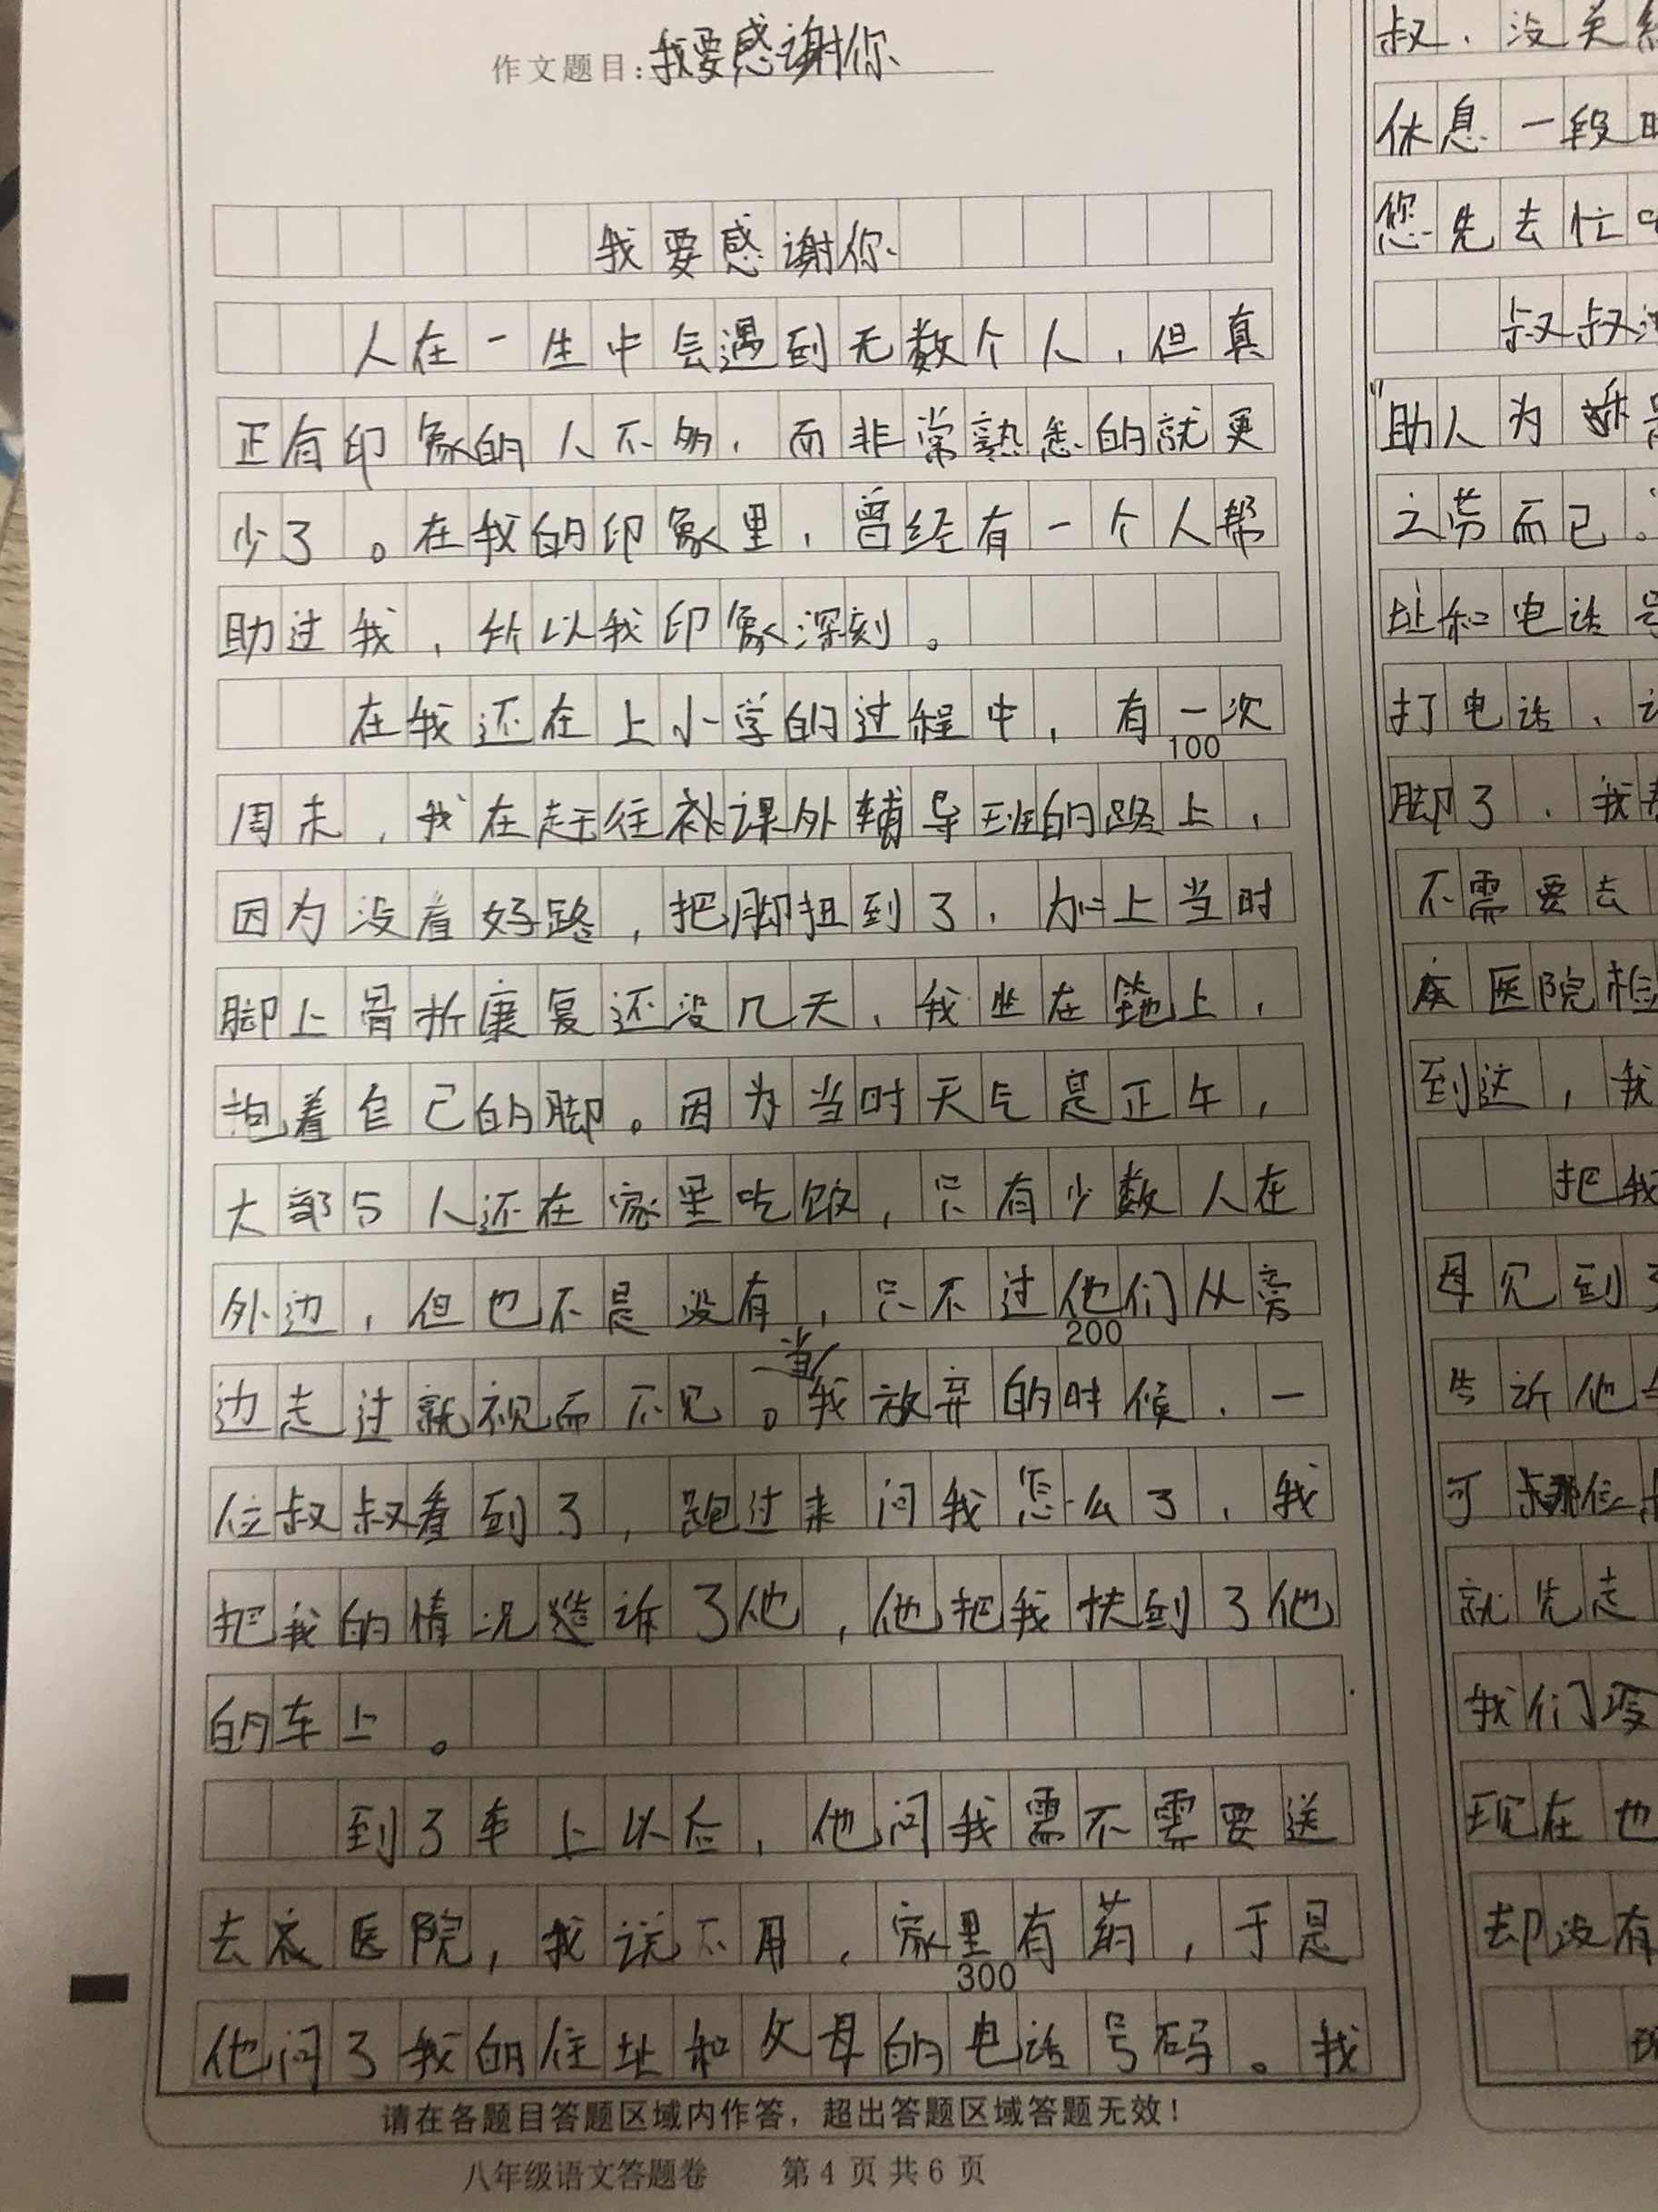 作文题目:我要感谢你
我要感谢你
人在一生中会遇到无数个人，但真
正有印象的人不多，而非常熟悉的就更
少了。在我的印象里，曾经有一个人帮
助过我，所以我印象深刻。
在我还在上小学的过程中，有一次
100
周末，我在赶往补课外辅导班的路上，
因为没看好路，把脚扭到了，加上当时
脚上骨折康复还没几天，我坐在地上，
抱着自己的脚。因为当时天气是正午，
大部分人还在家里吃饭，只有少数人在
外边，但也不是没有，只不过他们从旁
200
边走过就视而不见。当我放弃的时候，一
位叔叔看到了，跑过来问我怎么了，我
把我的情况造诉了他，他把我扶到了他
的车上。
到了车上以后，他问我需不需要送
去医院，我说不用，家里有药，于是
300
他问了我的住址和父母的电话号码。我
请在各题目答题区域内作答，超出答题区域答题无效！
八年级语文答题卷 第4页共6页
叔，没关
休息一段
您先去忙
叔叔
"助人为
之劳而已。
址和电话号
打电话，
脚了，我
不需要去
医院检
到达，我
把我
母见到了
告诉他
可那位
就先走
我们没
现在也
却没有